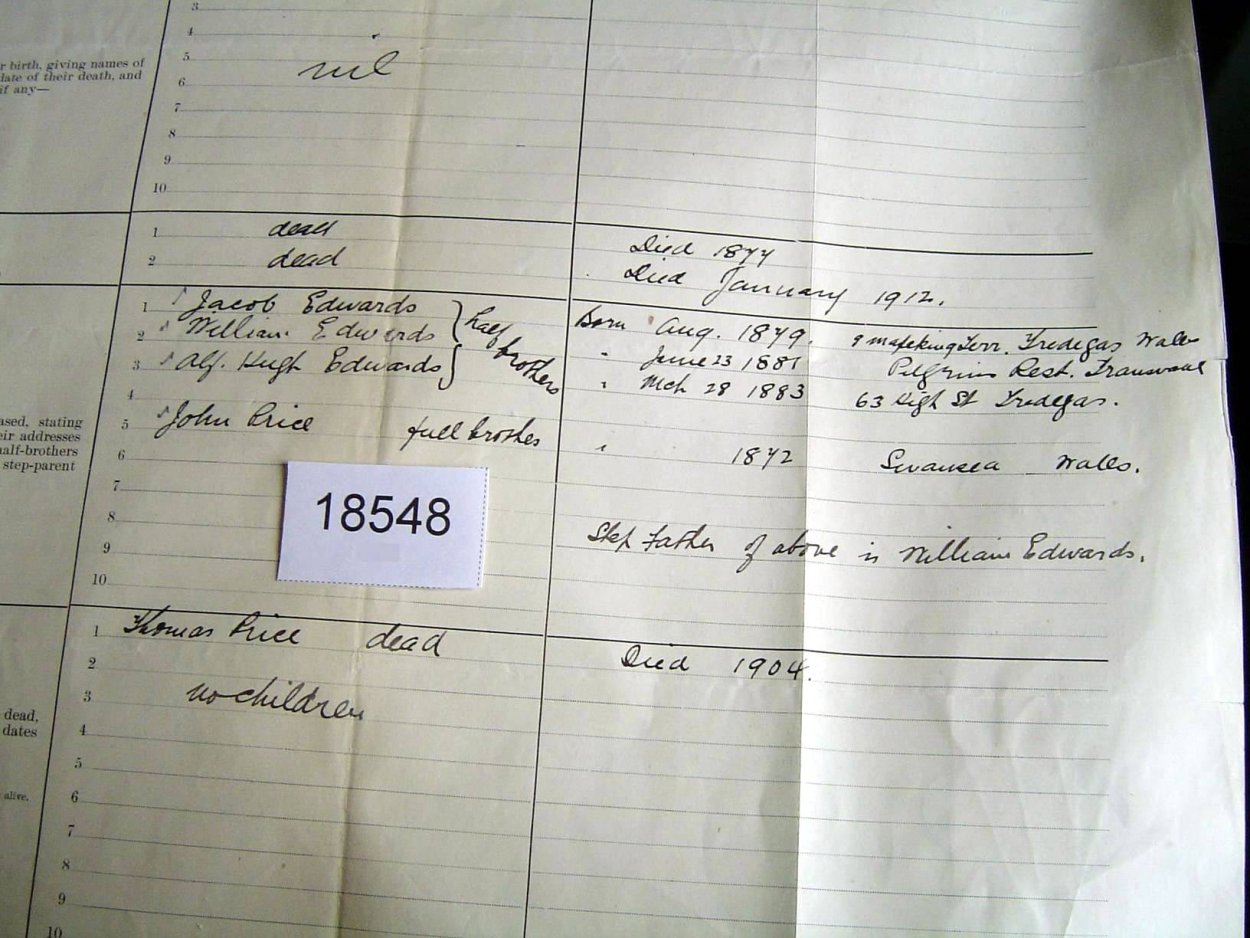 3
4
r birth, giving names of
date of their death, and
if any—
5 nil
6
7
8
9
10
1 dead Died 1877
2 dead Died January 1912.
1 Jacob Edwards half brothers Born Aug. 1879. 9 Mafeking Terr. Tredegar Wales
2 William Edwards " June 23 1881 Pilgrims Rest. Transvaal
3 Alf. Hugh Edwards " Mch 28 1883 63 High St Tredegar.
4
5 John Price full brother " 1872 Swansea Wales.
ased, stating
eir addresses
half-brothers
step-parent
6
7
18548
8
9 Step Father of above is William Edwards.
10
1 Thomas Price dead Died 1904.
2
3 no children
dead,
dates
4
5
alive,
6
7
8
9
10